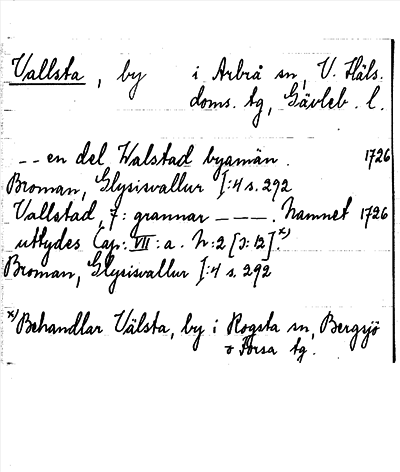 Vallsta, by i Arbrå sn, V. Häls.
doms. tg, Gävleb. l.
-- en del Walstad byamän. 1726
Broman, Glysisvallur I:4 s. 292
Vallstad, 7: grannar ---. Namnet 1726
uttydes Cap: VII: a. N:2 [J: 12].x)
Broman, Glysisvallur I:4 s. 292
x) Behandlar Välsta, by i Rogsta sn, Bergsjö
o Forsa tg.